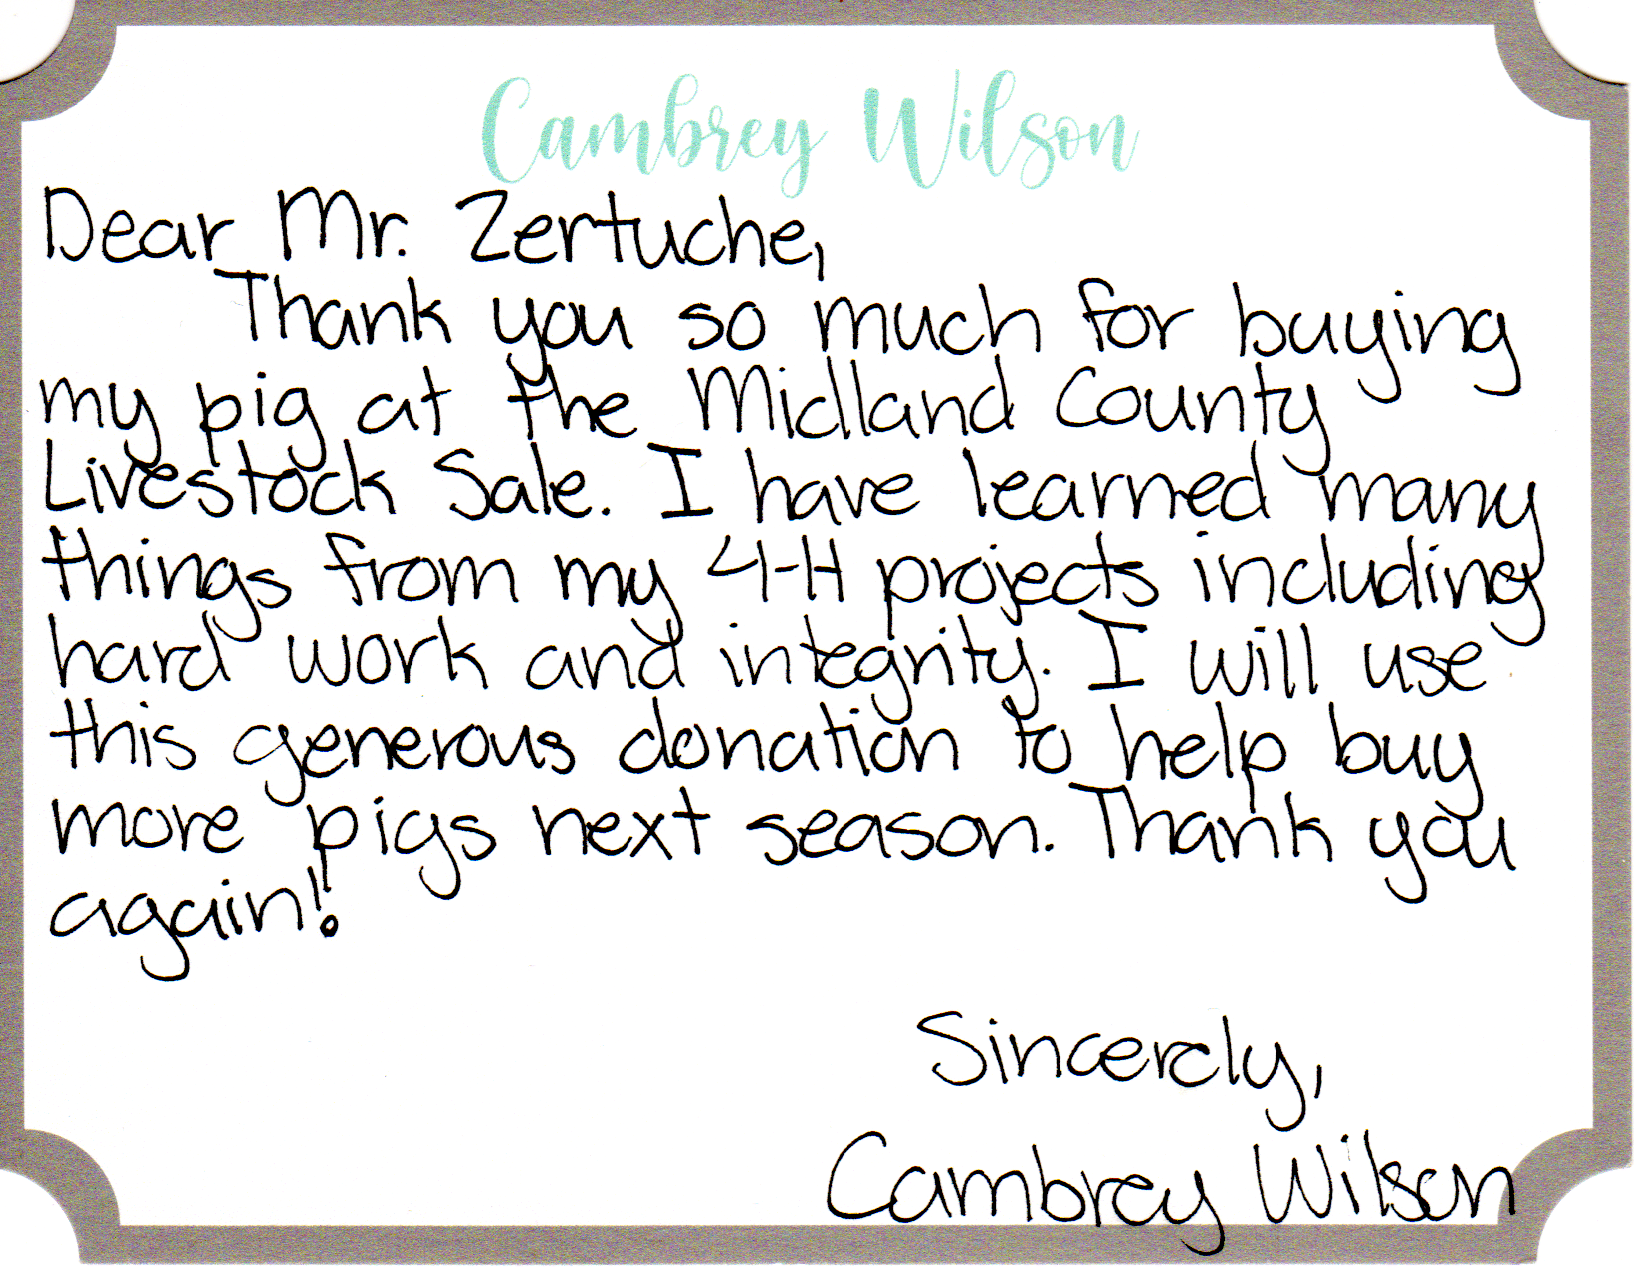 Cambrey Wilson
Dear Mr. Zertuche,
Thank you so much for buying
my pig at the Midland County
Livestock Sale. I have learned many
things from my 4-H projects including
hard work and integrity. I will use
this generous donation to help buy
more pigs next season. Thank you
again!
Sincerely,
Cambrey Wilson